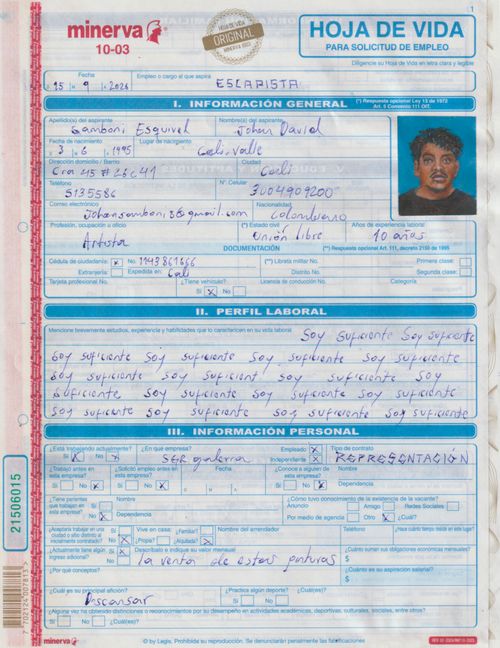 1
minerva
10-03
HOJA DE VIDA
ORIGINAL
MINERVA 10-03
HOJA DE VIDA
PARA SOLICITUD DE EMPLEO
Diligencie su Hoja de Vida en letra clara y legible
Fecha
Empleo o cargo al que aspira
15 9 2024 ESCAPISTA
I. INFORMACIÓN GENERAL
(*) Respuesta opcional Ley 13 de 1972
Art. 5 Convenio 111 OIT.
Apellido(s) del aspirante Nombre(s) del aspirante
Samboni Esquivel Johan David
Fecha de nacimiento Lugar de nacimiento
3 6 1995 Cali, Valle
Dirección domicilio / Barrio Ciudad
Cra 45 # 26c41 Cali
Teléfono Nº. Celular
5135586 3004909200
Correo electrónico Nacionalidad
Johansamboni3@gmail.com Colombiano
Profesión, ocupación u oficio (*) Estado civil Años de experiencia laboral
Artista Unión libre 10 años
DOCUMENTACIÓN (*) Respuesta opcional Art. 111, decreto 2150 de 1995
Cédula de ciudadanía: X No. 1143861666 (**) Libreta militar No. Primera clase:
Extranjería: Expedida en: Cali Distrito No. Segunda clase:
Tarjeta profesional No. ¿Tiene vehículo? Licencia de conducción No. Categoría
Si X No
II. PERFIL LABORAL
Mencione brevemente estudios, experiencia y habilidades que lo caractericen en su vida laboral
Soy suficiente Soy suficiente
Soy suficiente Soy suficiente Soy suficiente Soy suficiente
Soy suficiente Soy suficient Soy suficiente Soy
suficiente Soy suficiente Soy suficiente Soy suficiente
Soy suficiente Soy suficiente Soy suficiente Soy suficiente
III. INFORMACIÓN PERSONAL
¿Está trabajando actualmente? ¿En qué empresa? Empleado X Tipo de contrato
Si X No X SGR galería Independiente X REPRESENTACIÓN
¿Trabajó antes en esta empresa? ¿Solicitó empleo antes en esta empresa? Fecha ¿Conoce a alguien de esta empresa? Nombre
Si No X Si No X Si No X Dependencia
¿Tiene parientes que trabajan en esta empresa? Nombre ¿Cómo tuvo conocimiento de la existencia de la vacante?
Anuncio Amigo Redes Sociales
Si No X Dependencia Por medio de agencia Otro X ¿Cuál?
¿Aceptaría trabajar en una ciudad o sitio distinto al inicialmente contratado? Vive en casa: ¿Familiar? Nombre del arrendador Teléfono ¿Hace cuánto tiempo reside en este lugar?
Si No X ¿Propia? ¿Alquilada? X
¿Actualmente tiene algún ingreso adicional? Si No X Descríbalo e indique su valor mensual ¿Cuánto suman sus obligaciones económicas mensuales?
la venta de estas pinturas $
¿Por qué conceptos? ¿Cuál es su aspiración salarial?
$
¿Cuál es su principal afición? ¿Practica algún deporte? ¿Cuál(es)?
Descansar Si No
¿Alguna vez ha obtenido distinciones o reconocimientos por su desempeño en actividades académicas, deportivas, culturales, sociales, entre otros?
Si No ¿Cuál(es)?
minerva
© by Legis. Prohibida su reproducción. Se denunciarán penalmente las falsificaciones
21506015
7 702124 007813